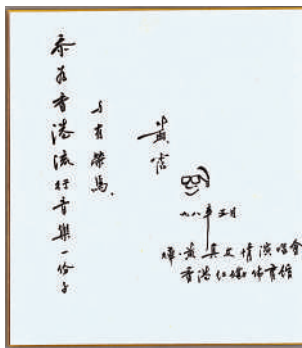 忝為香港流行音樂一份子
與有榮焉.
黃霑
一九八八年三月
輝·黃真友情演唱會
香港紅磡體育館